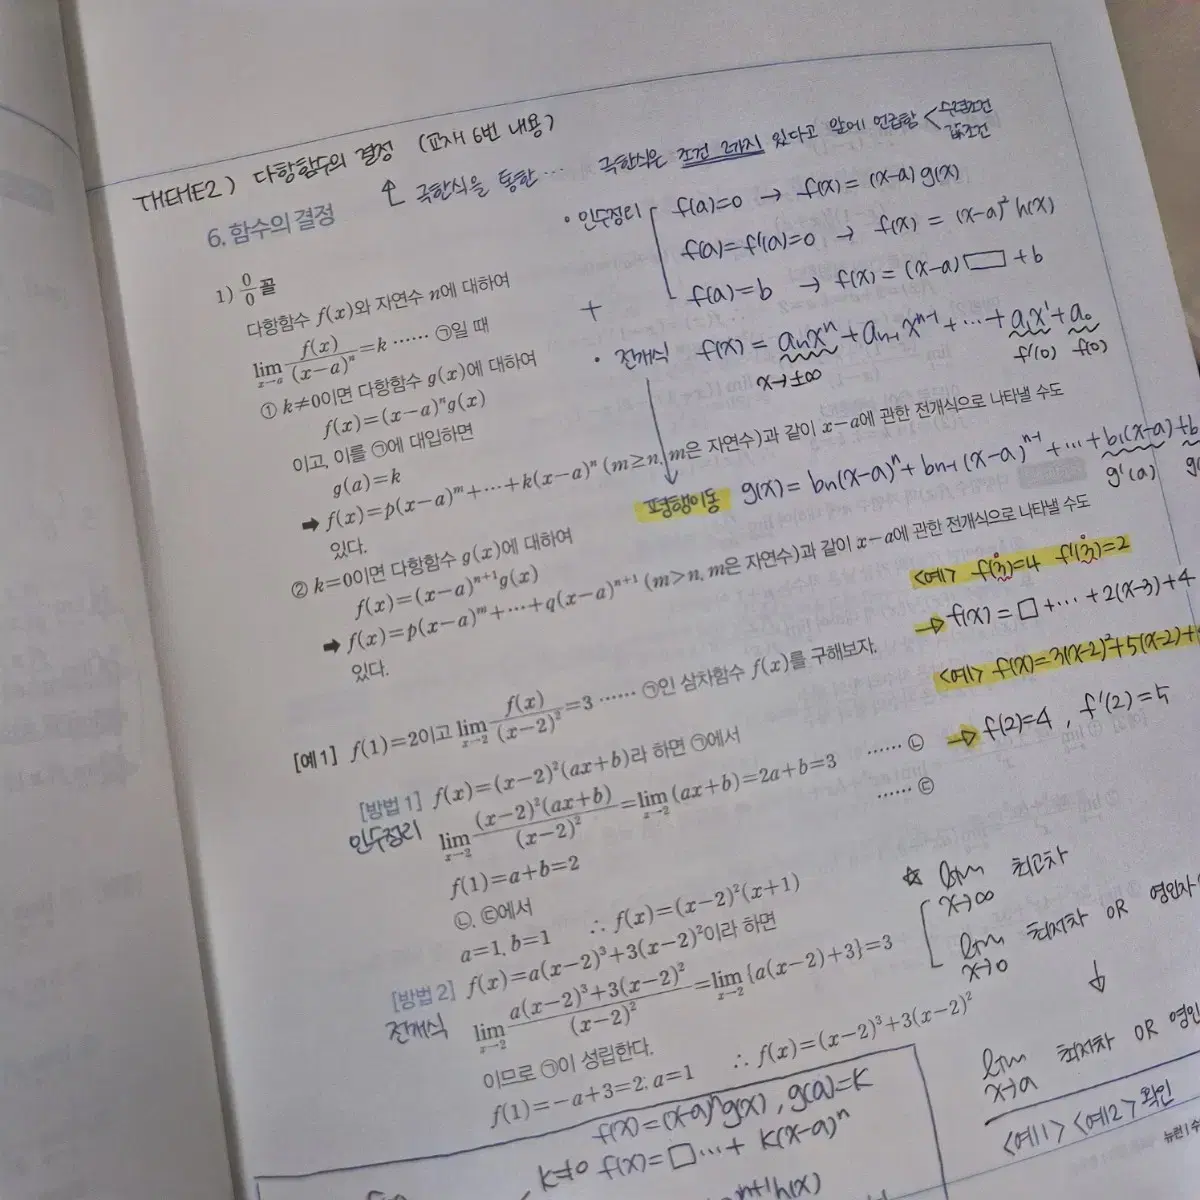 THEME2) 다항함수의 결정 (교재 6번 내용)
↳ 극한식을 통한… 극한식은 조건 2가지 있다고 앞에 언급함 < 수렴조건
값조건
6. 함수의 결정
• 인수정리 f(a)=0 → f(x)=(x-a)g(x)
f(a)=f'(a)=0 → f(x)=(x-a)²h(x)
f(a)=b → f(x)=(x-a)□+b
+
• 전개식 f(x)=aₙxⁿ+aₙ₋₁xⁿ⁻¹+⋯+a₁x¹+a₀
x→±∞ f'(0) f(0)
평행이동 g(x)=bₙ(x-a)ⁿ+bₙ₋₁(x-a)ⁿ⁻¹+⋯+b₁(x-a)+b
g'(a)
1) 0/0 꼴
다항함수 f(x)와 자연수 n에 대하여
lim x→a f(x)/(x-a)ⁿ=k …… ㉠일 때
① k≠0이면 다항함수 g(x)에 대하여
f(x)=(x-a)ⁿg(x)
이고, 이를 ㉠에 대입하면
g(a)=k
➡ f(x)=p(x-a)ᵐ+⋯+k(x-a)ⁿ (m≥n, m은 자연수)과 같이 x-a에 관한 전개식으로 나타낼 수도
있다.
② k=0이면 다항함수 g(x)에 대하여
f(x)=(x-a)ⁿ⁺¹g(x)
➡ f(x)=p(x-a)ᵐ+⋯+q(x-a)ⁿ⁺¹ (m>n, m은 자연수)과 같이 x-a에 관한 전개식으로 나타낼 수도
있다.
<예> f(3)=4 f'(3)=2
→ f(x)=□+⋯+2(x-3)+4
<예> f(x)=3(x-2)²+5(x-2)+
→ f(2)=4, f'(2)=5
[예 1] f(1)=2이고 lim x→2 f(x)/(x-2)²=3 …… ㉠인 삼차함수 f(x)를 구해보자.
[방법 1] f(x)=(x-2)²(ax+b)라 하면 ㉠에서
인수정리 lim x→2 (x-2)²(ax+b)/(x-2)²=lim x→2 (ax+b)=2a+b=3 …… ㉡
f(1)=a+b=2 …… ㉢
㉡, ㉢에서
a=1, b=1 ∴ f(x)=(x-2)²(x+1)
[방법 2] f(x)=a(x-2)³+3(x-2)²이라 하면
전개식 lim x→2 a(x-2)³+3(x-2)²/(x-2)²=lim x→2 {a(x-2)+3}=3
이므로 ㉠이 성립한다.
f(1)=-a+3=2; a=1 ∴ f(x)=(x-2)³+3(x-2)²
☆ lim x→∞ 최고차
lim x→0 최저차 OR 영인자
↓
lim x→a 최저차 OR 영인
<예1> <예2> 확인
뉴런 | 수
f(x)=(x-a)ⁿg(x), g(a)=k
k≠0 f(x)=□⋯+k(x-a)ⁿ
n+1h(x)